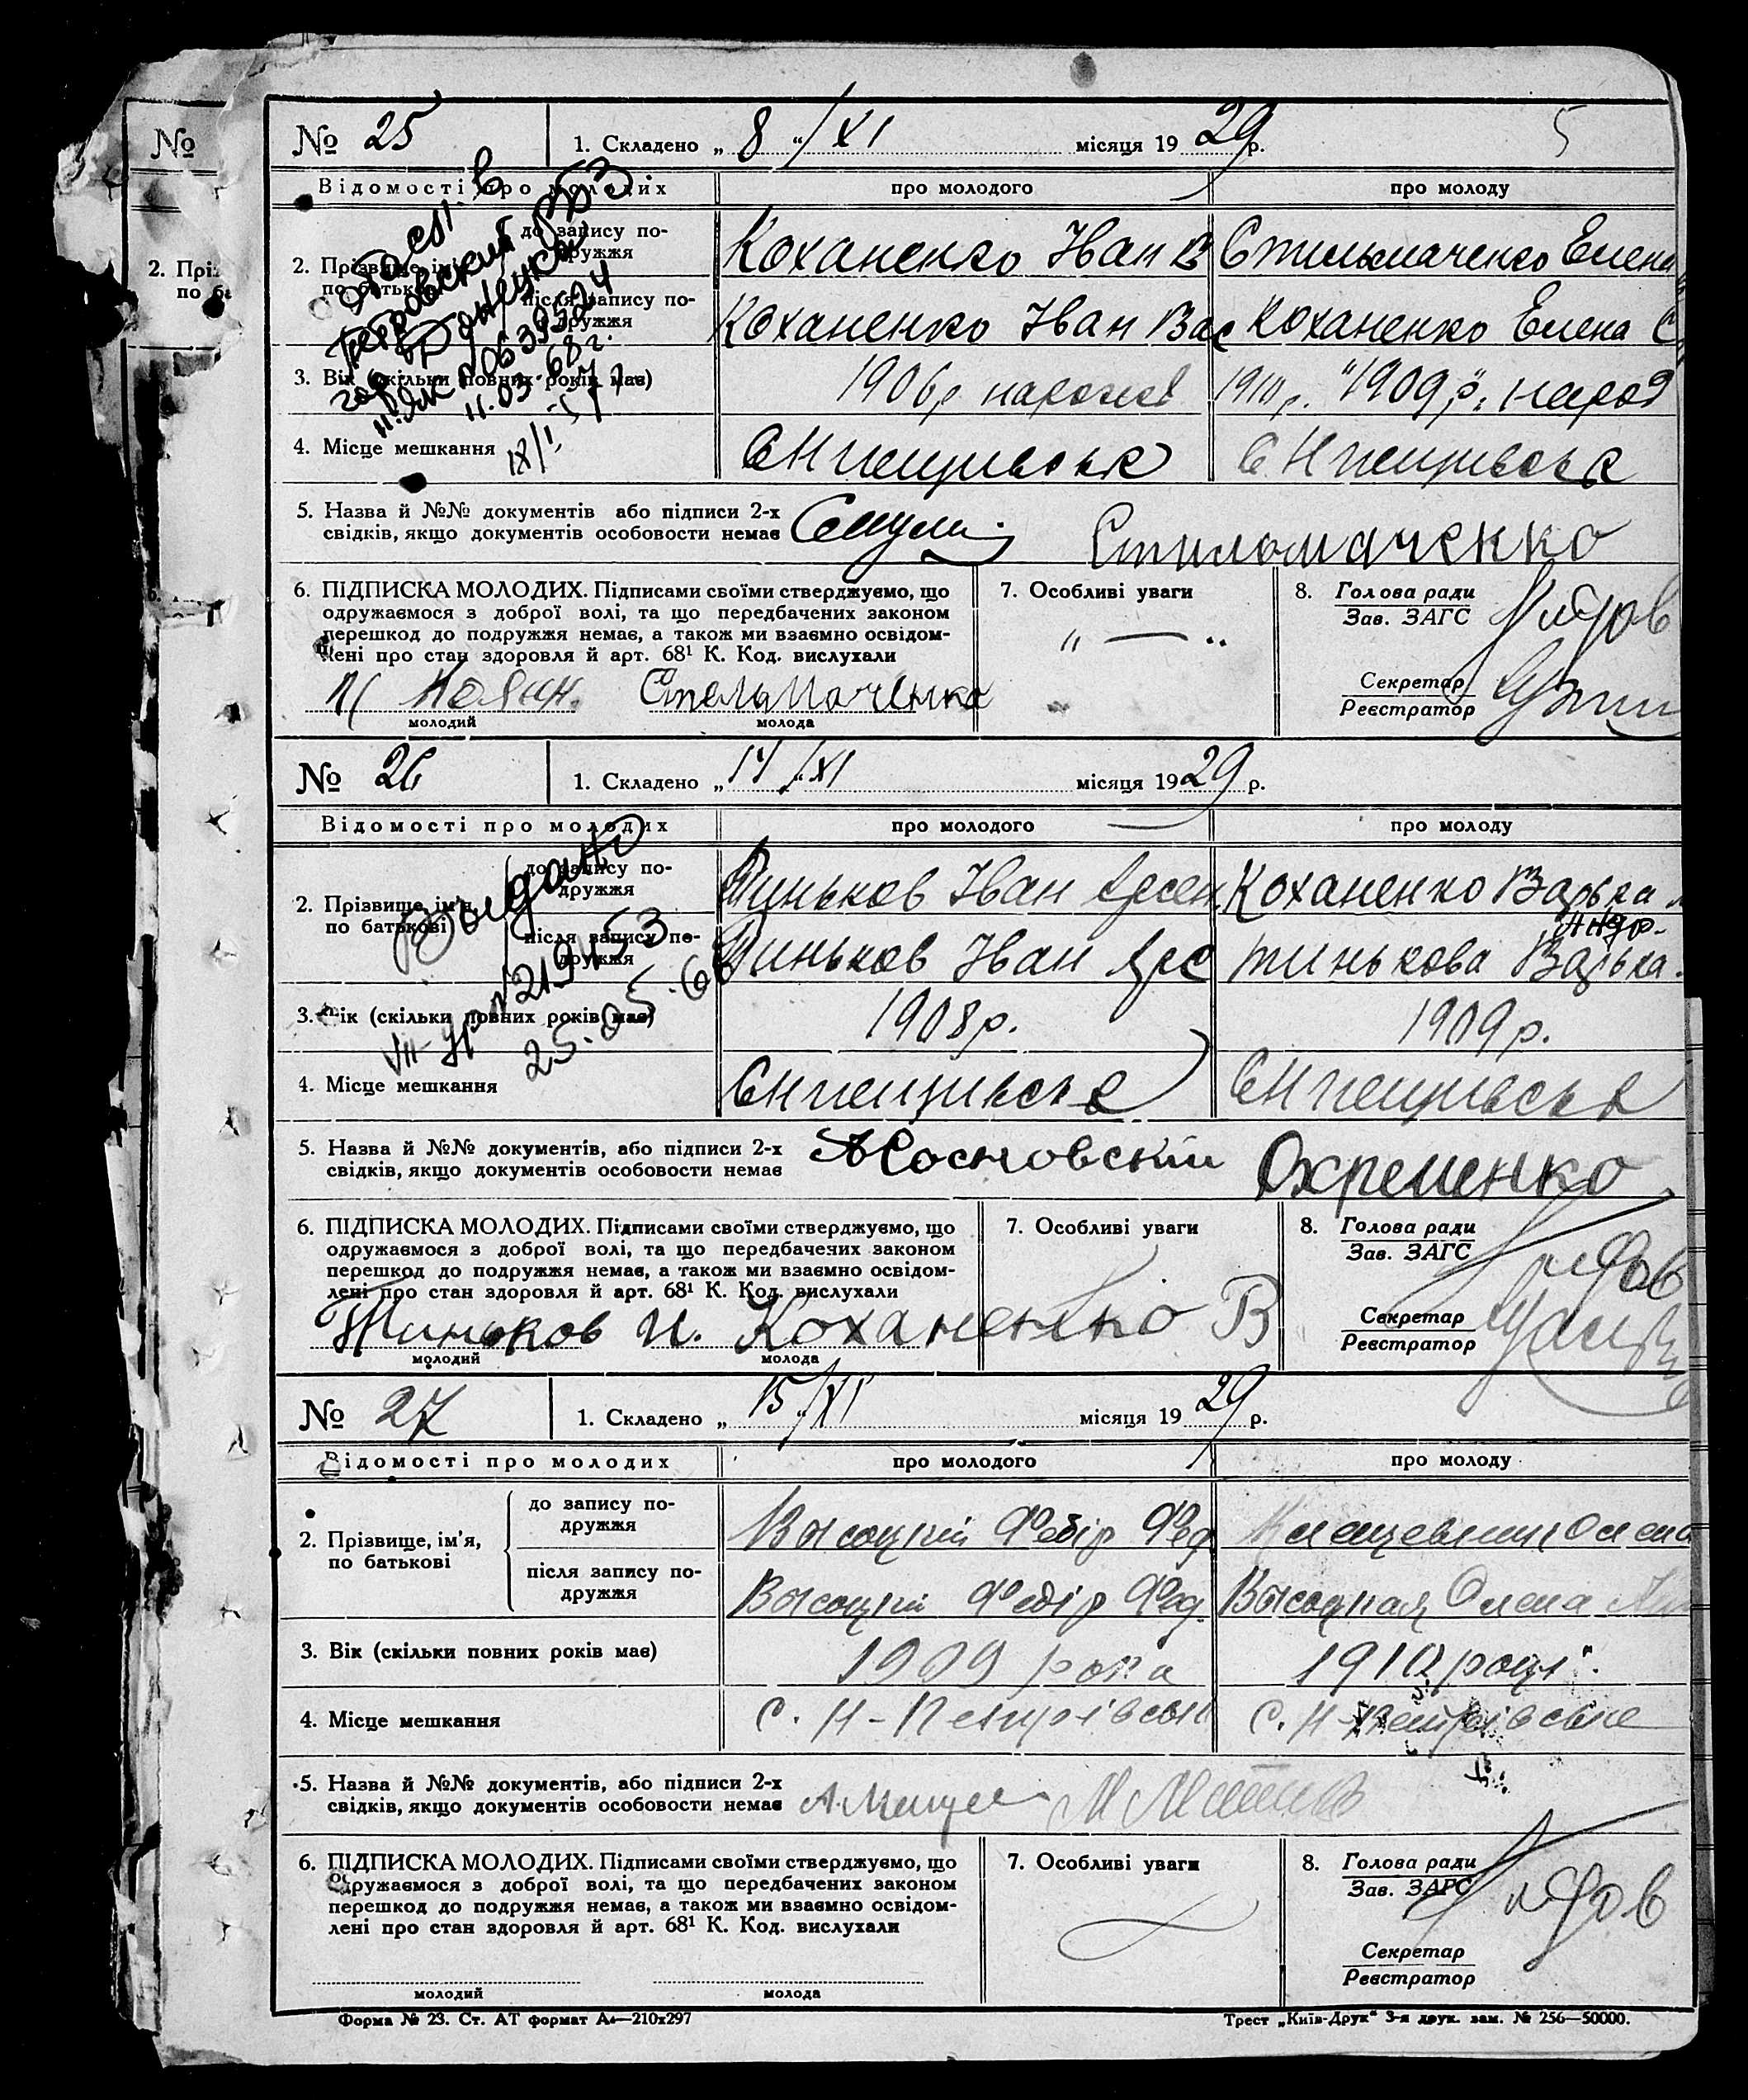 №
2. Прі
по ба
№ 25
1. Складено „ 8 “ / XI місяця 19 29 р.
5
Відомості про молодих
про молодого
про молоду
2. Прізвище, ім'я
по батькові
до запису по-
дружжя
Коханенко Іван В
Стильмаченко Елена
після запису по-
дружжя
Коханенко Іван Вас
Коханенко Елена С
3. Вік (скільки повних років має)
1906р
1910р. "1909р." народ
4. Місце мешкання
0639524
11.03.68г.
5. Назва й №№ документів або підписи 2-х
свідків, якщо документів особовости немає
Стиломаченко
6. ПІДПИСКА МОЛОДИХ. Підписами своїми стверджуємо, що
одружаємося з доброї волі, та що передбачених законом
перешкод до подружжя немає, а також ми взаємно освідом-
лені про стан здоров'я й арт. 68¹ К. Код. вислухали
Стельмаченко
молодий
молода
7. Особливі уваги
" — "
8. Голова ради
Зав. ЗАГС
Секретар
Реєстратор
№ 26
1. Складено „ 14 “ / XI місяця 19 29 р.
Відомості про молодих
про молодого
про молоду
2. Прізвище, ім'я
по батькові
до запису по-
дружжя
Тиньков Іван Арсен
Коханенко Варька
після запису по-
дружжя
Тиньков Іван Арс
Тинькова Варька
Выдано
219453
25.05.6
3. Вік (скільки повних років має)
1908р.
1909р.
4. Місце мешкання
5. Назва й №№ документів, або підписи 2-х
свідків, якщо документів особовости немає
Сосновскій
Охременко
6. ПІДПИСКА МОЛОДИХ. Підписами своїми стверджуємо, що
одружаємося з доброї волі, та що передбачених законом
перешкод до подружжя немає, а також ми взаємно освідом-
лені про стан здоровля й арт. 68¹ К. Код. вислухали
Тиньков И. Коханенко В
молодий
молода
7. Особливі уваги
8. Голова ради
Зав. ЗАГС
Секретар
Реєстратор
№ 27
1. Складено „ 15 “ / XI місяця 19 29 р.
Відомості про молодих
про молодого
про молоду
2. Прізвище, ім'я,
по батькові
до запису по-
дружжя
Высоцкій Федір Фед
Олена
після запису по-
дружжя
Высоцкій Федір Фед.
Высоцкая Олена
3. Вік (скільки повних років має)
1909 рока
1910 року
4. Місце мешкання
с. Н-Петрівськ
с. Н-Петрівське
5. Назва й №№ документів, або підписи 2-х
свідків, якщо документів особовости немає
6. ПІДПИСКА МОЛОДИХ. Підписами своїми стверджуємо, що
одружаємося з доброї волі, та що передбачених законом
перешкод до подружжя немає, а також ми взаємно освідом-
лені про стан здоровля й арт. 68¹ К. Код. вислухали
молодий
молода
7. Особливі уваги
8. Голова ради
Зав. ЗАГС
Секретар
Реєстратор
Форма № 23. Ст. АТ формат А4—210х297
Трест „Київ-Друк“ 3-я друк. зам. № 256—50000.